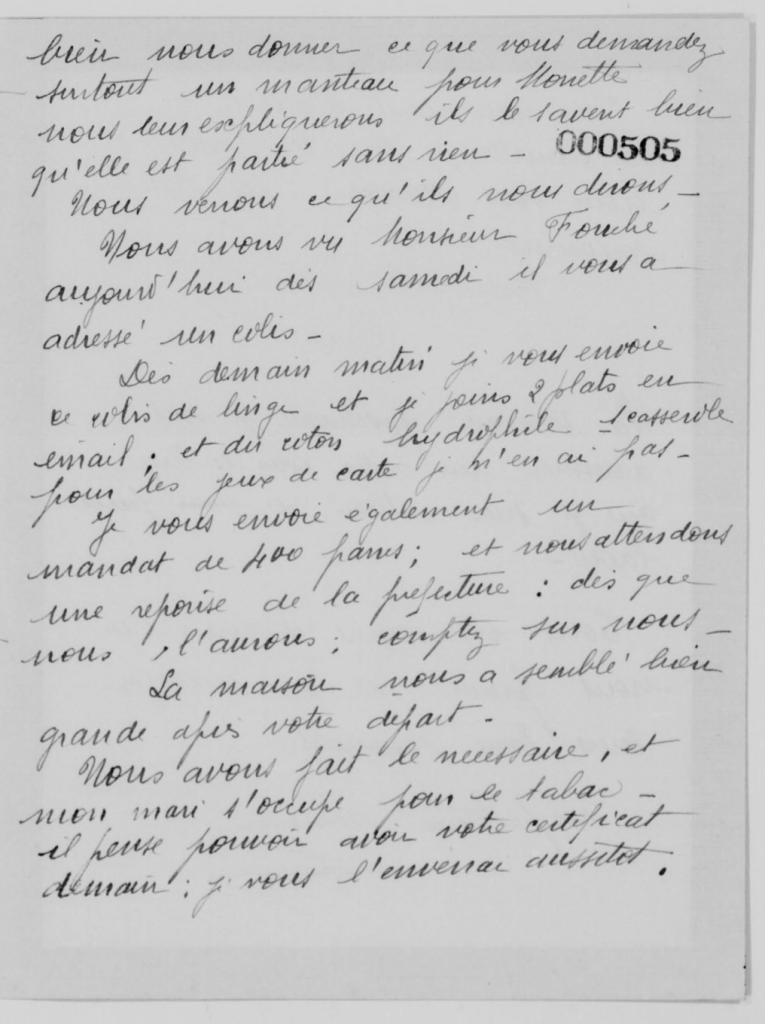 bien nous donner ce que vous demandez
surtout un manteau pour Monette
nous leur expliquerons ils le savent bien
qu'elle est partie sans rien - 000505
Nous verrons ce qu'ils nous dirons -
Nous avons vu Monsieur Fouché
aujourd'hui dès samedi il vous a
adressé un colis -
Dès demain matin je vous envoie
ce colis de linge et je joins 2 plats en
email ; et du coton hydrophile 1 casserole
pour les jeux de carte je n'en ai pas -
Je vous envoie également un
mandat de 400 francs ; et nous attendons
une réponse de la préfecture : dès que
nous l'aurons ; comptez sur nous -
La maison nous a semblé bien
grande après votre départ -
Nous avons fait le nécessaire, et
mon mari s'occupe pour le tabac -
il pense pouvoir avoir votre certificat
demain ; je vous l'enverrai aussitot.